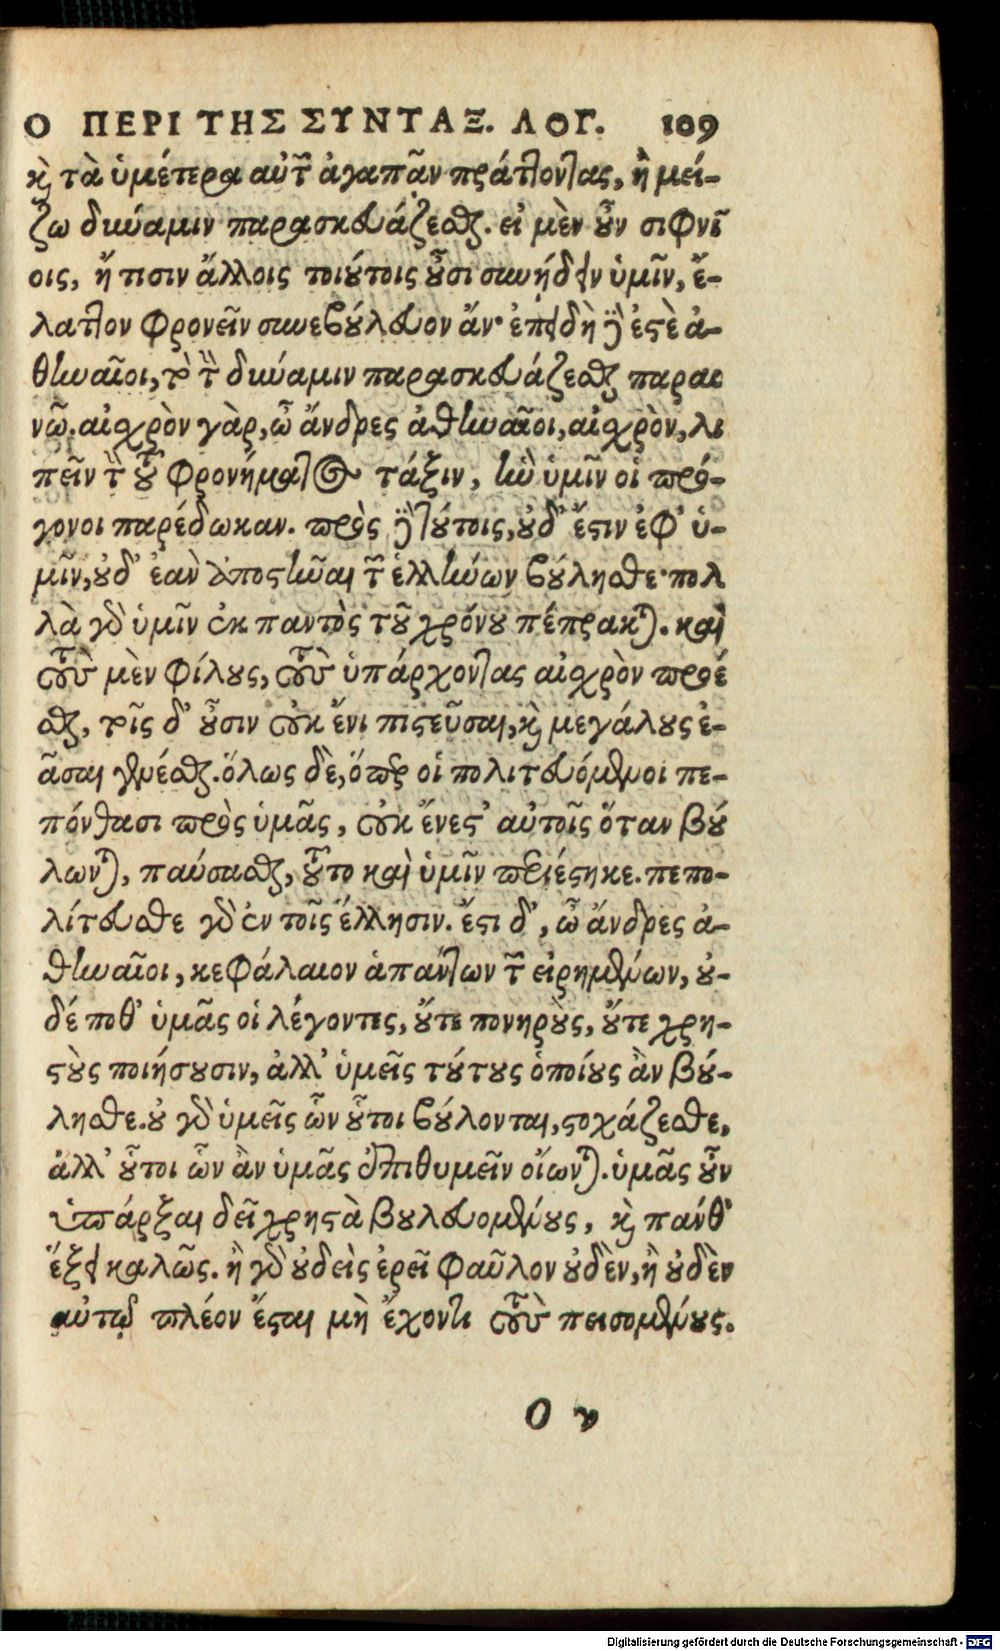 Ο ΠΕΡΙ ΤΗΣ ΣΥΝΤΑΞ. ΛΟΓ. 109
καὶ τὰ ὑμέτερα αὐτῶν ἀγαπᾶν πράττοντας, ἢ μεί-
ζω δύναμιν παρασκευάζεσθαι. εἰ μὲν οὖν σιφνί
οις, ἤ τισιν ἄλλοις τοιούτοις οὖσι συνῄδειν ὑμῖν, ἔ-
λαττον φρονεῖν συνεβούλευον ἄν· ἐπειδὴ δὲ ἐστὲ ἀ-
θηναῖοι, τὸ τὴν δύναμιν παρασκευάζεσθαι παραι
νῶ. αἰσχρὸν γὰρ, ὦ ἄνδρες ἀθηναῖοι, αἰσχρὸν, λι
πεῖν τὴν τοῦ φρονήματος τάξιν, ἣν ὑμῖν οἱ πρό-
γονοι παρέδωκαν. πρὸς δὲ τούτοις, οὐδ' ἔστιν ἐφ' ὑ-
μῖν, οὐδ' ἐὰν ἀποστῆναι τῶν ἑλλήνων βούλησθε· πολ
λὰ γὰρ ὑμῖν ἐκ παντὸς τοῦ χρόνου πέπρακται. καὶ
τοὺς μὲν φίλους, τοὺς ὑπάρχοντας αἰσχρὸν προέ
σθαι, τοῖς δ' οὖσιν οὐκ ἔνι πιστεῦσαι, καὶ μεγάλους ἐ-
ᾶσαι γενέσθαι. ὅλως δὲ, ὅπερ οἱ πολιτευόμενοι πε-
πόνθασι πρὸς ὑμᾶς, οὐκ ἔνεστ' αὐτοῖς ὅταν βού
λωνται, παύσασθαι, τοῦτο καὶ ὑμῖν περιέστηκε. πεπο-
λίτευσθε γὰρ ἐν τοῖς ἕλλησιν. ἔστι δ', ὦ ἄνδρες ἀ-
θηναῖοι, κεφάλαιον ἁπάντων τῶν εἰρημένων, οὐ-
δέ ποθ' ὑμᾶς οἱ λέγοντες, οὔτε πονηροὺς, οὔτε χρη-
στοὺς ποιήσουσιν, ἀλλ' ὑμεῖς τούτους ὁποίους ἂν βού-
λησθε. οὐ γὰρ ὑμεῖς ὧν οὗτοι βούλονται, στοχάζεσθε,
ἀλλ' οὗτοι ὧν ἂν ὑμᾶς ἐπιθυμεῖν οἴωνται. ὑμᾶς οὖν
ὑπάρξαι δεῖ χρηστὰ βουλευομένους, καὶ πάνθ'
ἕξει καλῶς. ἢ γὰρ οὐδεὶς ἐρεῖ φαῦλον οὐδὲν, ἢ οὐδὲν
αὐτῷ πλέον ἔσται μὴ ἔχοντι τοὺς πεισομένους.
Ο ν
Digitalisierung gefördert durch die Deutsche Forschungsgemeinschaft - DFG